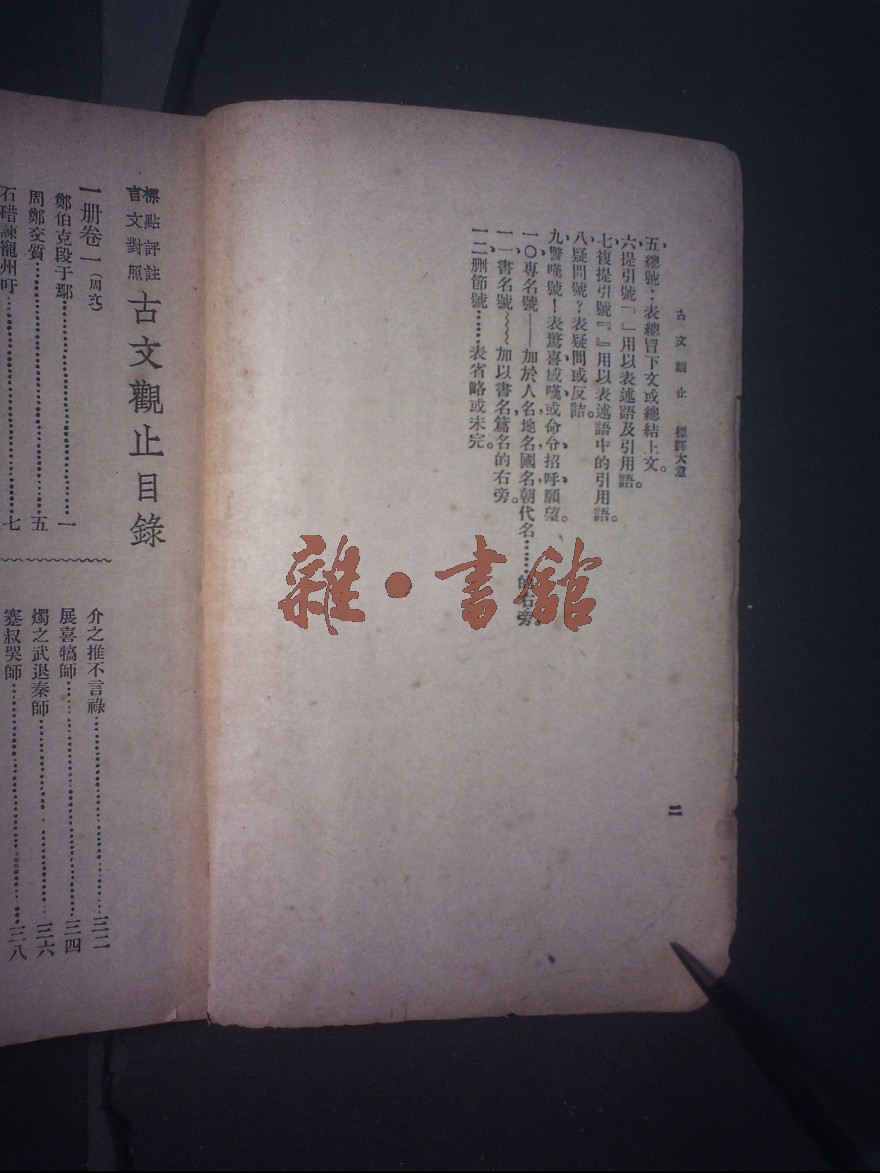 古文觀止 標點大意
五、總號：表總冒下文或總結上文。
六、提引號「」用以表述語及引用語。
七、複提引號『』用以表述語中的引用語。
八、疑問號？表疑問或反詰。
九、警嘆號！表驚喜、感嘆或命令、招呼、願望。
一〇、專名號——加於人名、地名、國名、朝代名……的右旁。
一一、書名號﹏﹏加以書名、篇名的右旁。
一二、刪節號……表省略或未完。
二
標點評註
言文對照
古文觀止目錄
一册卷一（周文）
鄭伯克段于鄢……一
周鄭交質……五
石碏諫寵州吁……七
介之推不言祿……三二
展喜犒師……三四
燭之武退秦師……三六
蹇叔哭師……三八
雜·書館